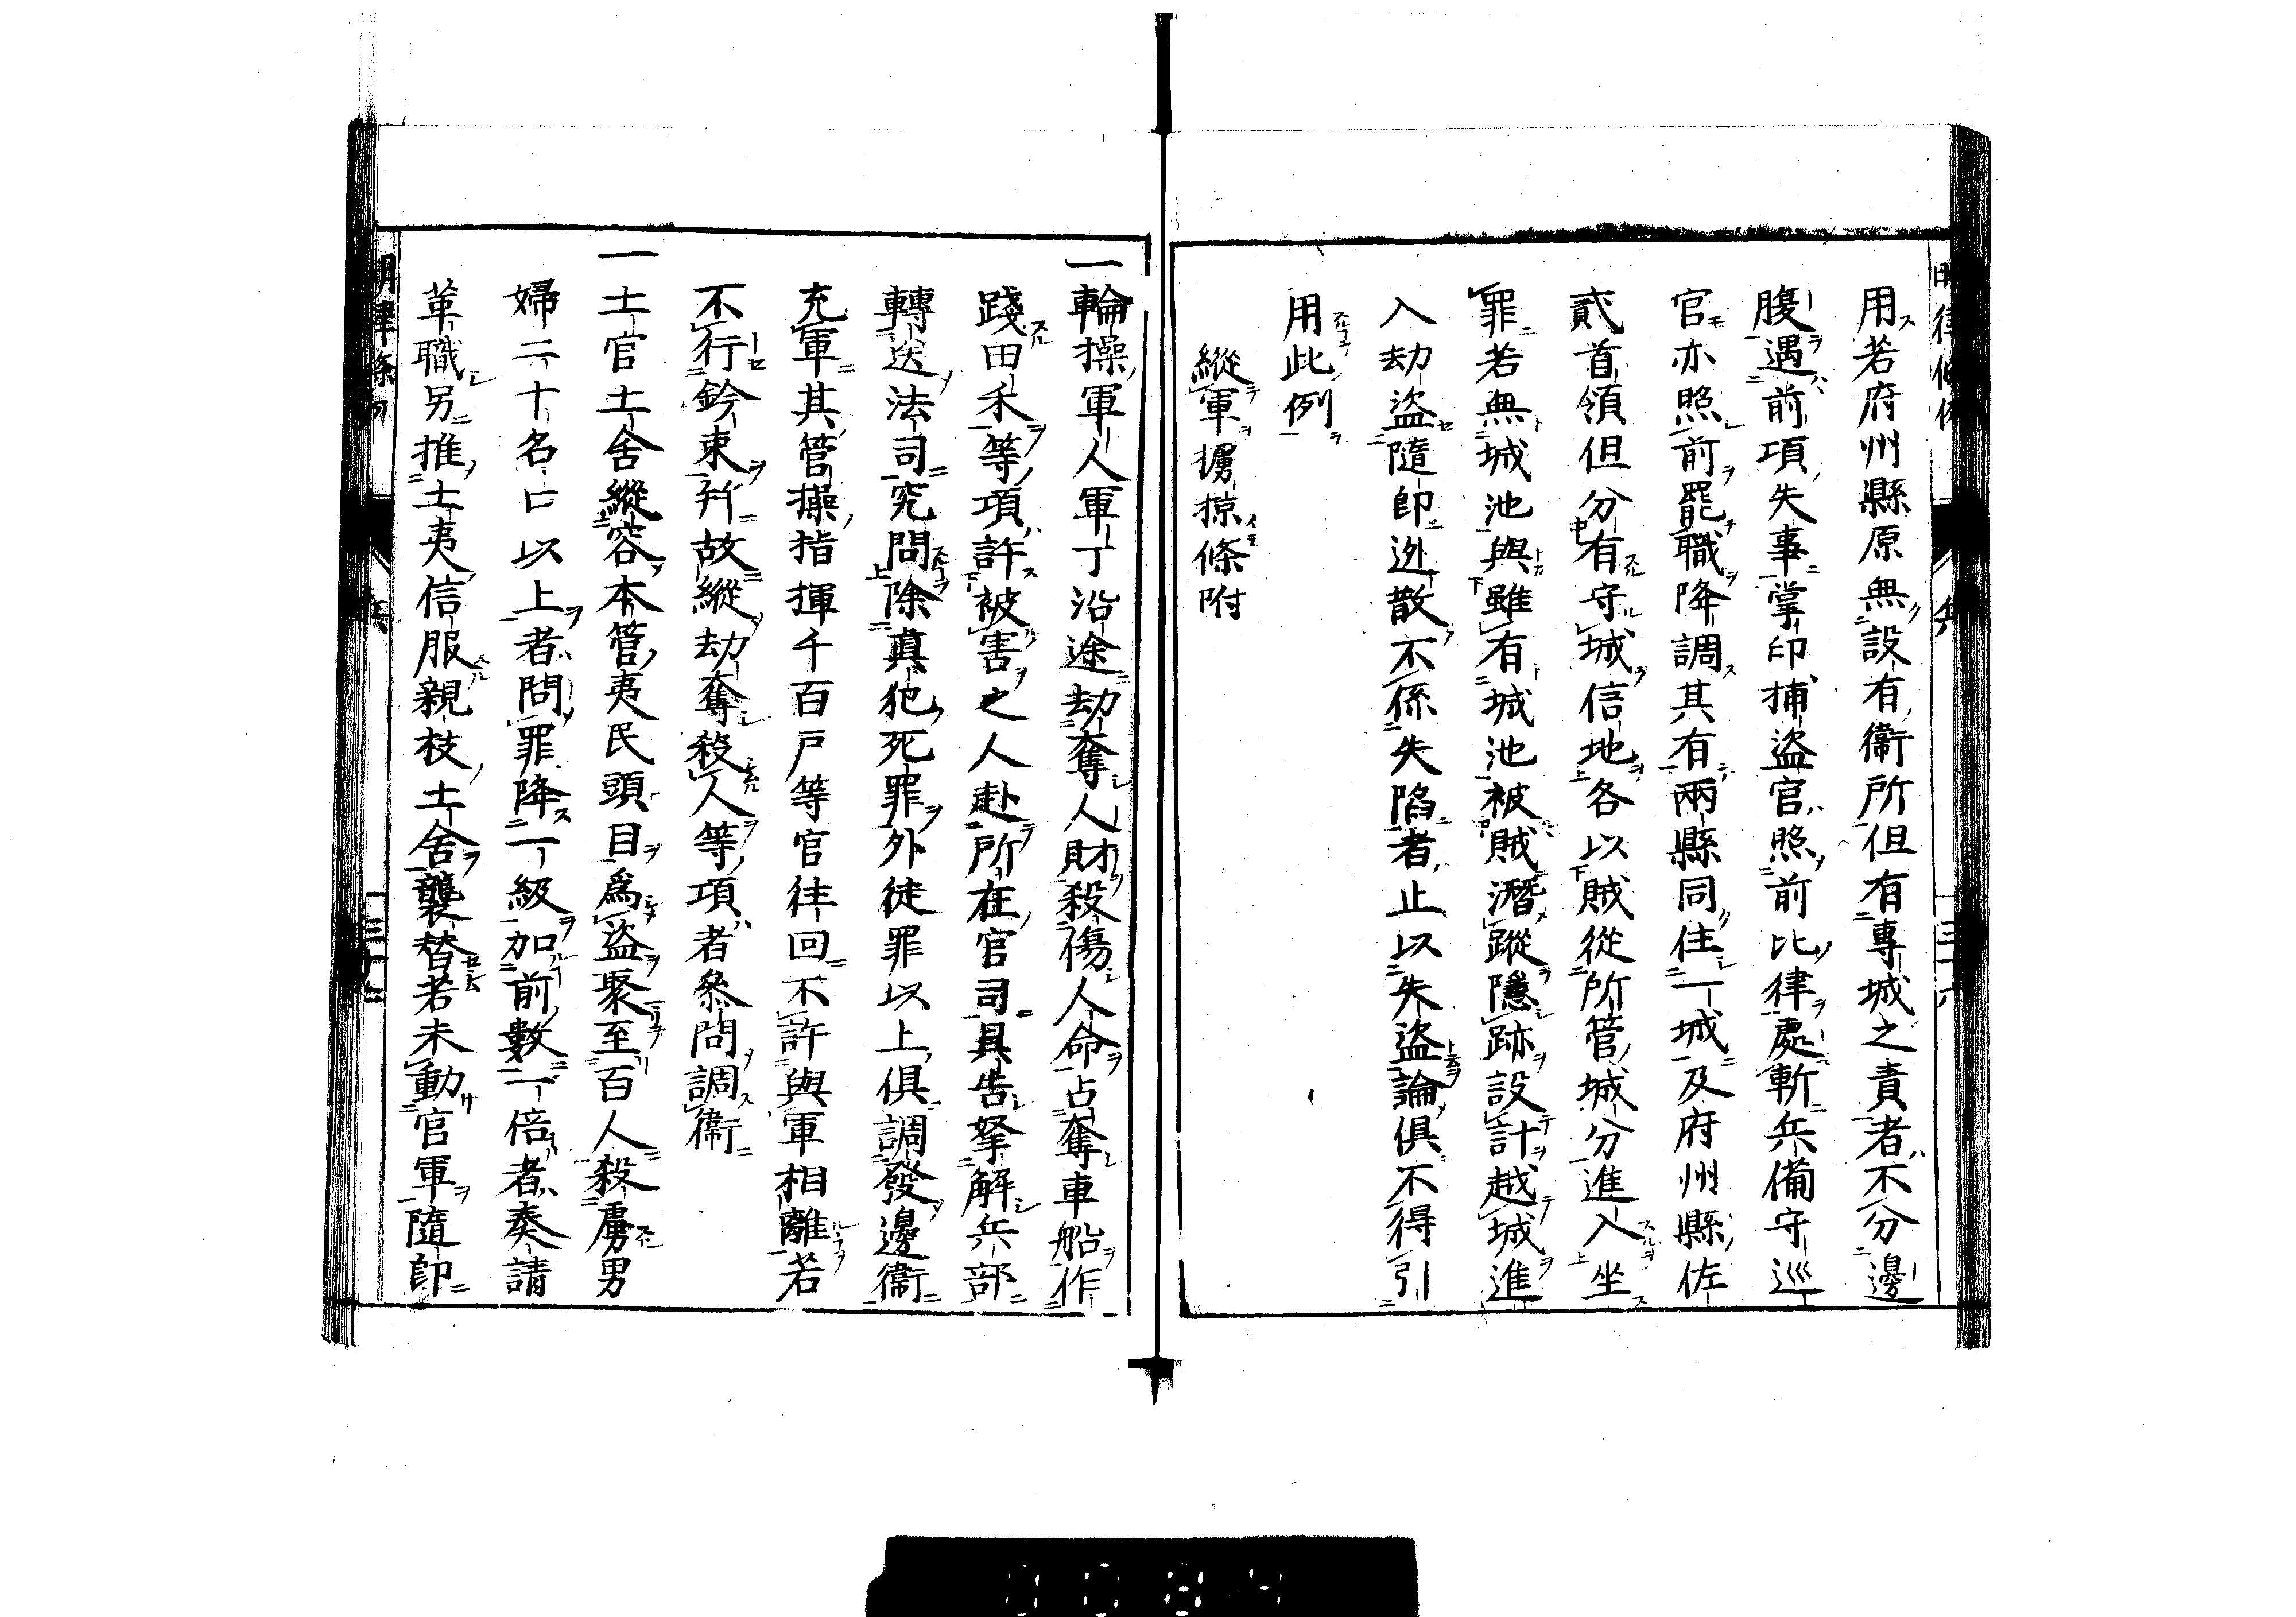 用若府州縣原無設有衞所但有專城之責者不分邊
腹遇前項失事掌印捕盜官照前比律處斬兵備守巡
官亦照前罷職降調其有兩縣同住一城及府州縣佐
貳首領但分有守城信地各以賊從所管城分進入坐
罪若無城池與雖有城池被賊潛蹤隱跡設計越城進
入劫盜隨即迯散不係失陷者止以失盜論俱不得引
用此例
縱軍擄掠條附
一輪操軍人軍丁沿途劫奪人財殺傷人命占奪車船作
踐田禾等項許被害之人赴所在官司具告拏解兵部
轉送法司究問除眞犯死罪外徒罪以上俱調發邊衞
充軍其管操指揮千百戶等官往回不許與軍相離若
不行鈐束幷故縱劫奪殺人等項者叅問調衞
一土官土舍縱容本管夷民頭目爲盜聚至百人殺虜男
婦二十名口以上者問罪降一級加前數一倍者奏請
革職另推土夷信服親枝土舍襲替若未動官軍隨即